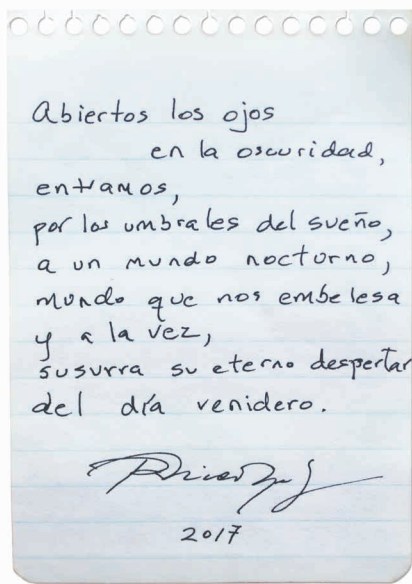 Abiertos los ojos
en la oscuridad,
entramos,
por los umbrales del sueño,
a un mundo nocturno,
mundo que nos embelesa
y a la vez,
susurra su eterno despertar
del día venidero.
2017